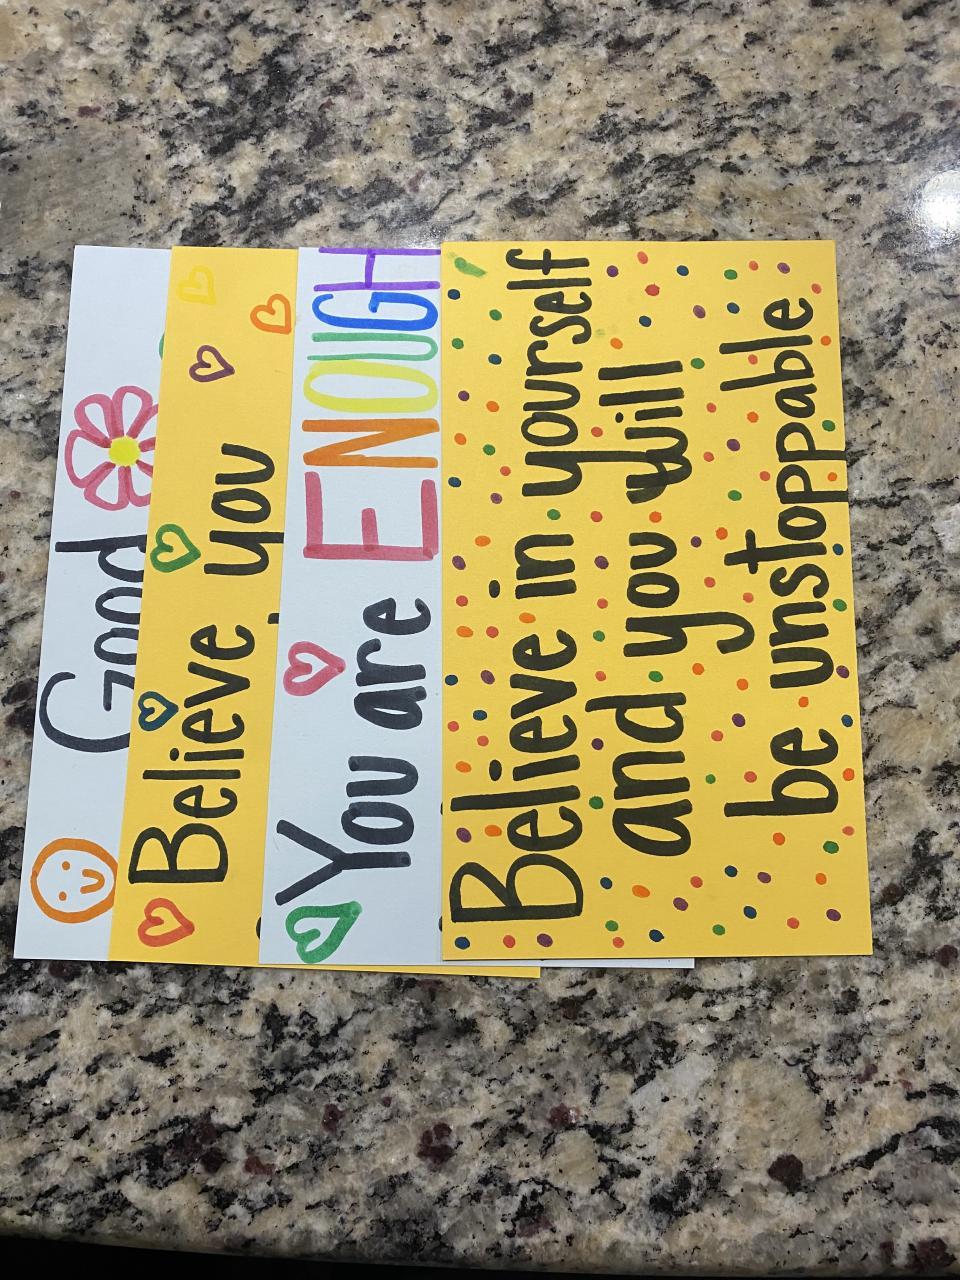 Good
Believe you
You are ENOUGH
Believe in yourself
and you will
be unstoppable